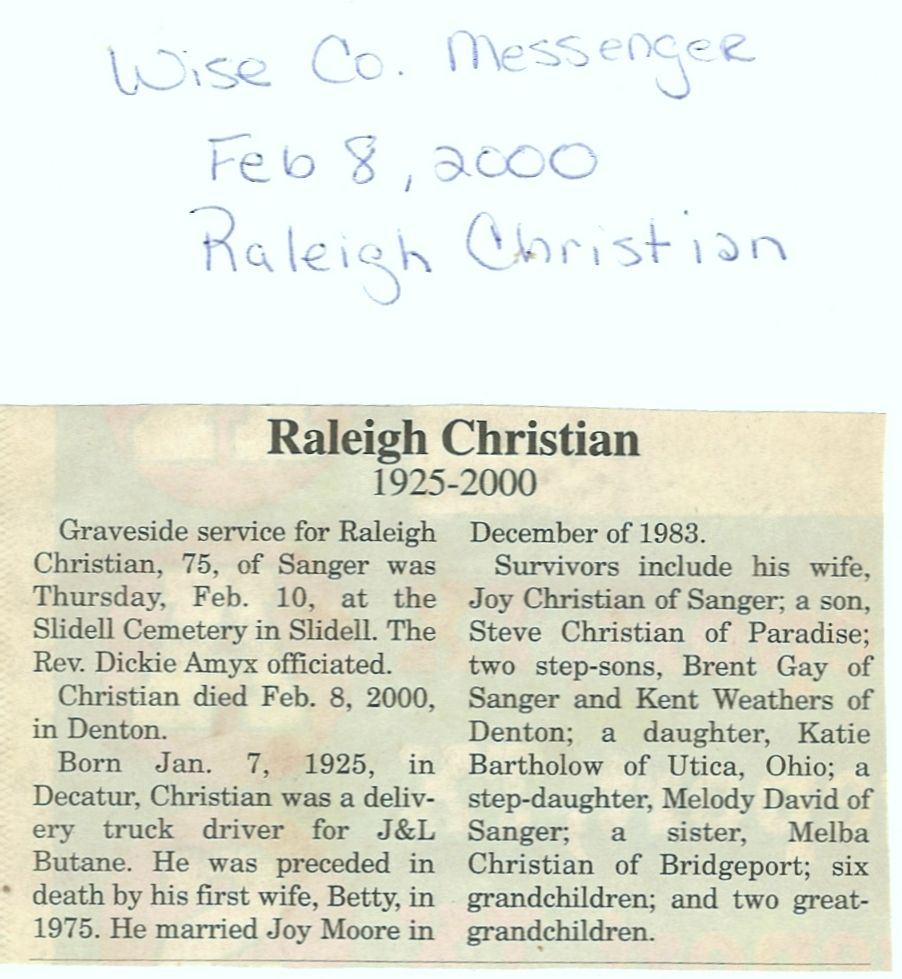 Wise Co. Messenger
Feb 8, 2000
Raleigh Christian
Raleigh Christian
1925-2000
Graveside service for Raleigh
Christian, 75, of Sanger was
Thursday, Feb. 10, at the
Slidell Cemetery in Slidell. The
Rev. Dickie Amyx officiated.
Christian died Feb. 8, 2000,
in Denton.
Born Jan. 7, 1925, in
Decatur, Christian was a deliv-
ery truck driver for J&L
Butane. He was preceded in
death by his first wife, Betty, in
1975. He married Joy Moore in
December of 1983.
Survivors include his wife,
Joy Christian of Sanger; a son,
Steve Christian of Paradise;
two step-sons, Brent Gay of
Sanger and Kent Weathers of
Denton; a daughter, Katie
Bartholow of Utica, Ohio; a
step-daughter, Melody David of
Sanger; a sister, Melba
Christian of Bridgeport; six
grandchildren; and two great-
grandchildren.